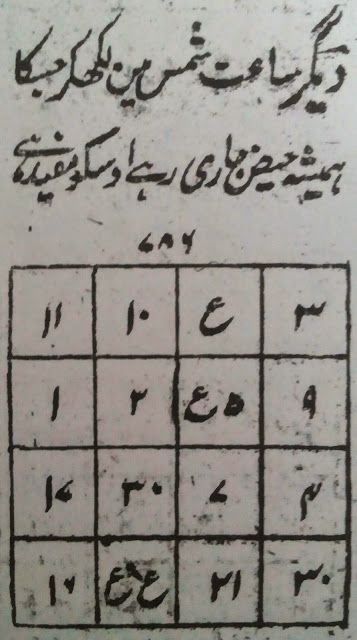 دیگر ساعت شمس مین لکھکر جسکا
ہمیشہ حیض جاری رہے اوسکو مفید ہے
۷۸۶
۳ ع ۱۰ ۱۱
۹ ۵ع ۲ ۱
۴ ۷ ۳۰ ۱۷
۳۰ ۲۱ ۱۶